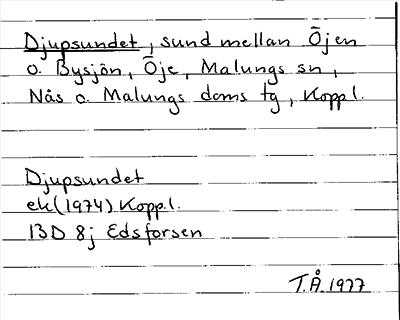 Djupsundet, sund mellan Öjen
o. Bysjön, Öje, Malungs sn,
Nås o. Malungs doms tg, Koppl.
Djupsundet
ek (1974) Koppl.
13D 8j Edsforsen
T.Å. 1977